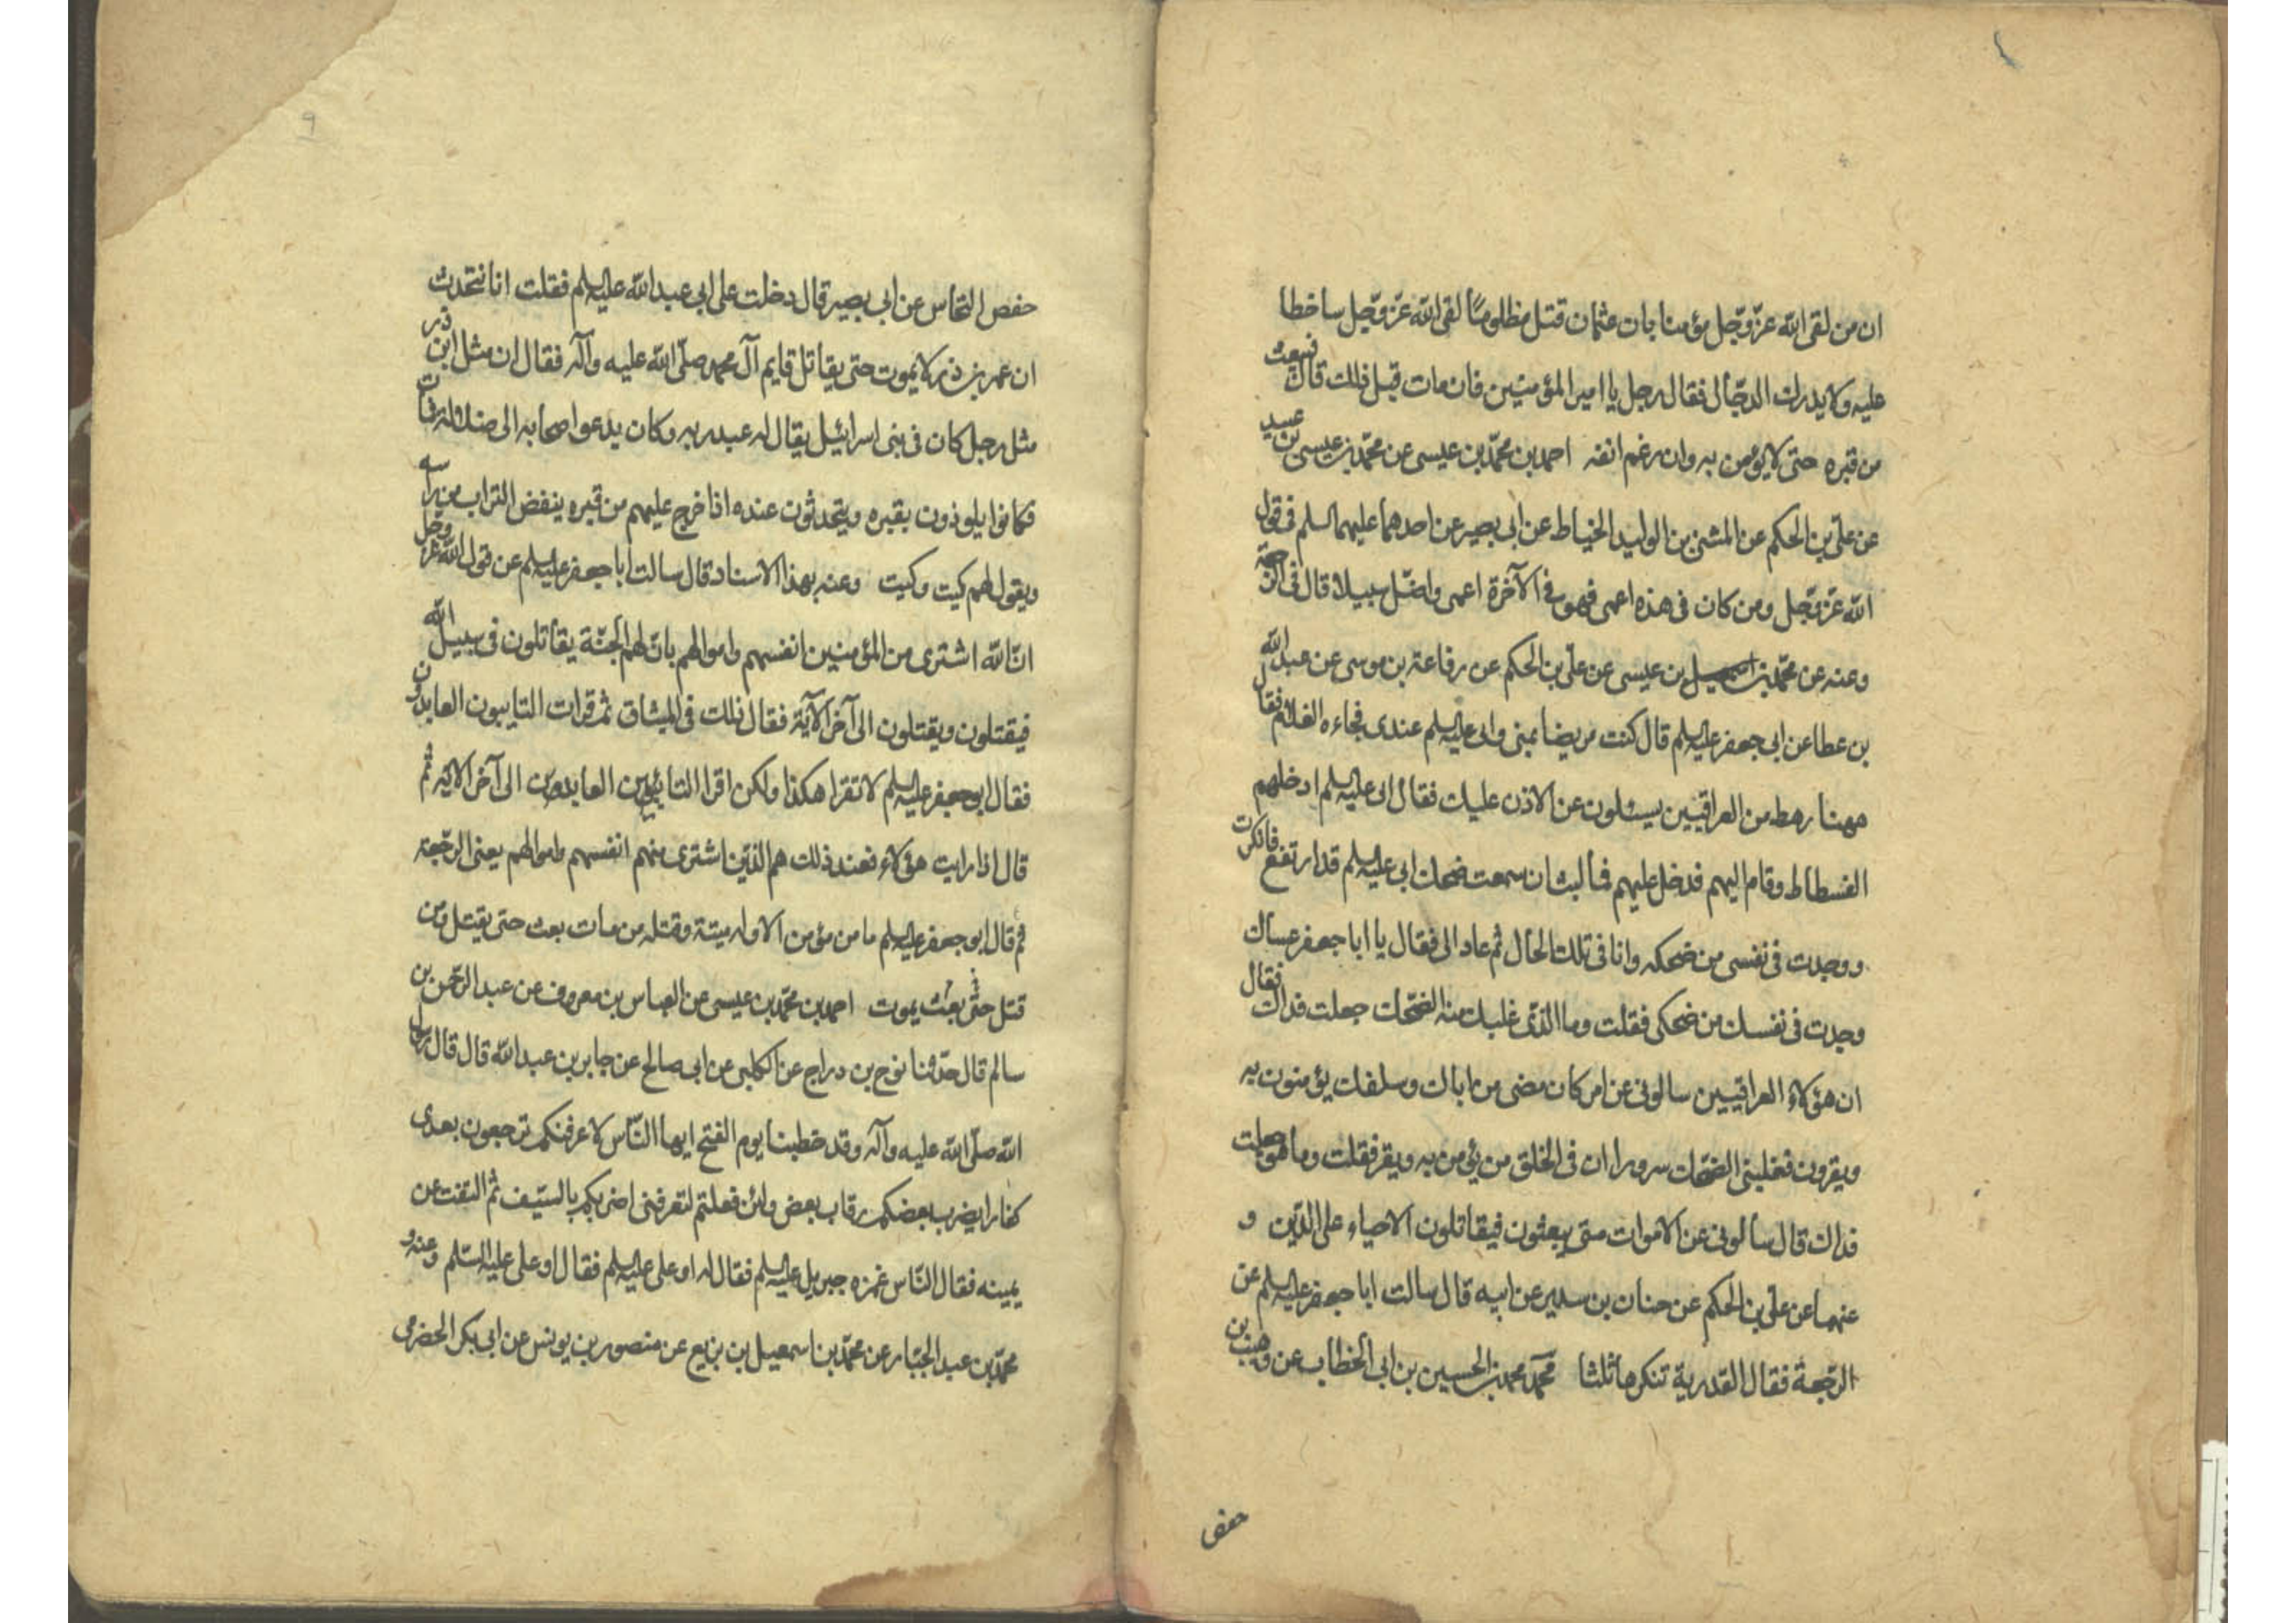 ان من لقى الله عزّ وجّل مؤمنا بان عثمان قتل مظلومًا لقى الله عزّ وجّل ساخطا
عليه ولا يدرك الدجّال فقال رجل يا امير المؤمنين فان مات قبل ذلك قال فيبعث
من قبره حتى لا يؤمن به وان رغم انفه احمد بن محمّد بن عيسى عن محمّد بن عيسى بن عبيد
عن علىّ بن الحكم عن المثنى بن الوليد الخياط عن ابى بصير عن احدهما عليهما السلم فى قول
الله عزّ وجّل ومن كان فى هذه اعمى فهو فى الآخرة اعمى واضّل سبيلا قال فى الرّجعة
وعنه عن محمّد بن اسمعيل بن عيسى عن علىّ بن الحكم عن رفاعة بن موسى عن عبد الله
بن عطا عن ابى جعفر عليه السلم قال كنت مريضا بمنى وابى عليه السلم عندى فجاءه الغلام فقال
ههنا رهط من العراقيين يسئلون عن الاذن عليك فقال ابى عليه السلم ادخلهم
الفسطاط وقام اليهم فدخل عليهم فما لبث ان سمعت ضحك ابى عليه السلم قد ارتفع فانكرت
ووجدت فى نفسى من ضحكه وانا فى تلك الحال ثم عاد الى فقال يا ابا جعفر عساك
وجدت فى نفسك من ضحكى فقلت وما الذّى غلبك منه الضّحك جعلت فداك فقال
ان هؤلاء العراقيين سالونى عن امر كان مضى من ابائك وسلفك يؤمنون به
ويقرون فغلبنى الضّحك سرورا ان فى الخلق من يؤمن به ويقر فقلت وما هو جعلت
فداك قال سألونى عن الاموات متى يبعثون فيقاتلون الاحياء على الدّين و
عنهما عن علىّ بن الحكم عن حنان بن سدير عن ابيه قال سالت ابا جعفر عليه السلم عن
الرّجعة فقال القدرية تنكرها ثلثا محمّد بن الحسين بن ابى الخطاب عن وهيب بن
حفص
٩
حفص النّخاس عن ابى بصير قال دخلت على ابى عبد الله عليه السلم فقلت انا نتحدث
ان عمر بن ذر لا يموت حتى يقاتل قايم آل محمد صلّى الله عليه وآله فقال ان مثل ابن ذر
مثل رجل كان فى بنى اسرائيل يقال له عبد ربه وكان يدعو اصحابه الى ضلالة فمات
فكانوا يلوذون بقبره ويتحدثون عنده اذا خرج عليهم من قبره ينفض التراب من راسه
ويقول لهم كيت وكيت وعنه بهذا الاسناد قال سالت ابا جعفر عليه السلم عن قول الله عزّ وجل
انّ الله اشترى من المؤمنين انفسهم واموالهم بانّ لهم الجنّة يقاتلون فى سبيل الله
فيقتلون ويقتلون الى آخر الآية فقال ذلك فى الميثاق ثم قرات التايبون العابدون
فقال ابو جعفر عليه السلم لا تقرا هكذا ولكن اقرا التائبين العابدين الى آخر الاية ثم
قال اذا رايت هؤلاء فعند ذلك هم الذّين اشترى منهم انفسهم واموالهم يعنى الرجّعة
ثم قال ابو جعفر عليه السلم ما من مؤمن الا وله ميتة وقتله من مات بعث حتى يقتل ومن
قتل حتّى بعث يموت احمد بن محمّد بن عيسى عن العباس بن معروف عن عبد الرّحمن بن
سالم قال حدّثنا نوح بن دراج عن الكلبى عن ابى صالح عن جابر بن عبد الله قال قال رسول
الله صلّى الله عليه وآله وقد خطبنا يوم الفتح ايها النّاس لاعرفنكم ترجعون بعدى
كفارا يضرب بعضكم رقاب بعض ولئن فعلتم لتعرفنى اضربكم بالسيّف ثم التفت عن
يمينه فقال النّاس غمزه جبريل عليه السلم فقال له او على عليه السلم فقال او على عليه السّلم وعنه و
محمّد بن عبد الجبّار عن محمّد بن اسمعيل بن بزيع عن منصور بن يونس عن ابى بكر الحضرمى